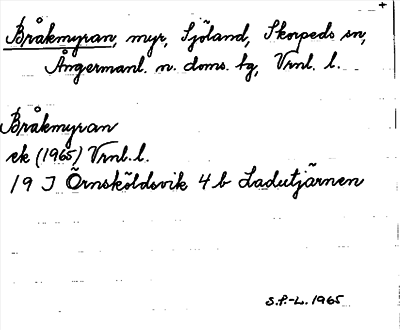 Bråkmyran, myr, Sjöland, Skorpeds sn,
Ångermanl. n. doms. tg, Vrnl. l.
Bråkmyran
ek (1965) Vrnl. l.
19 J Örnsköldsvik 4 b Ladutjärnen
S.P.-L. 1965